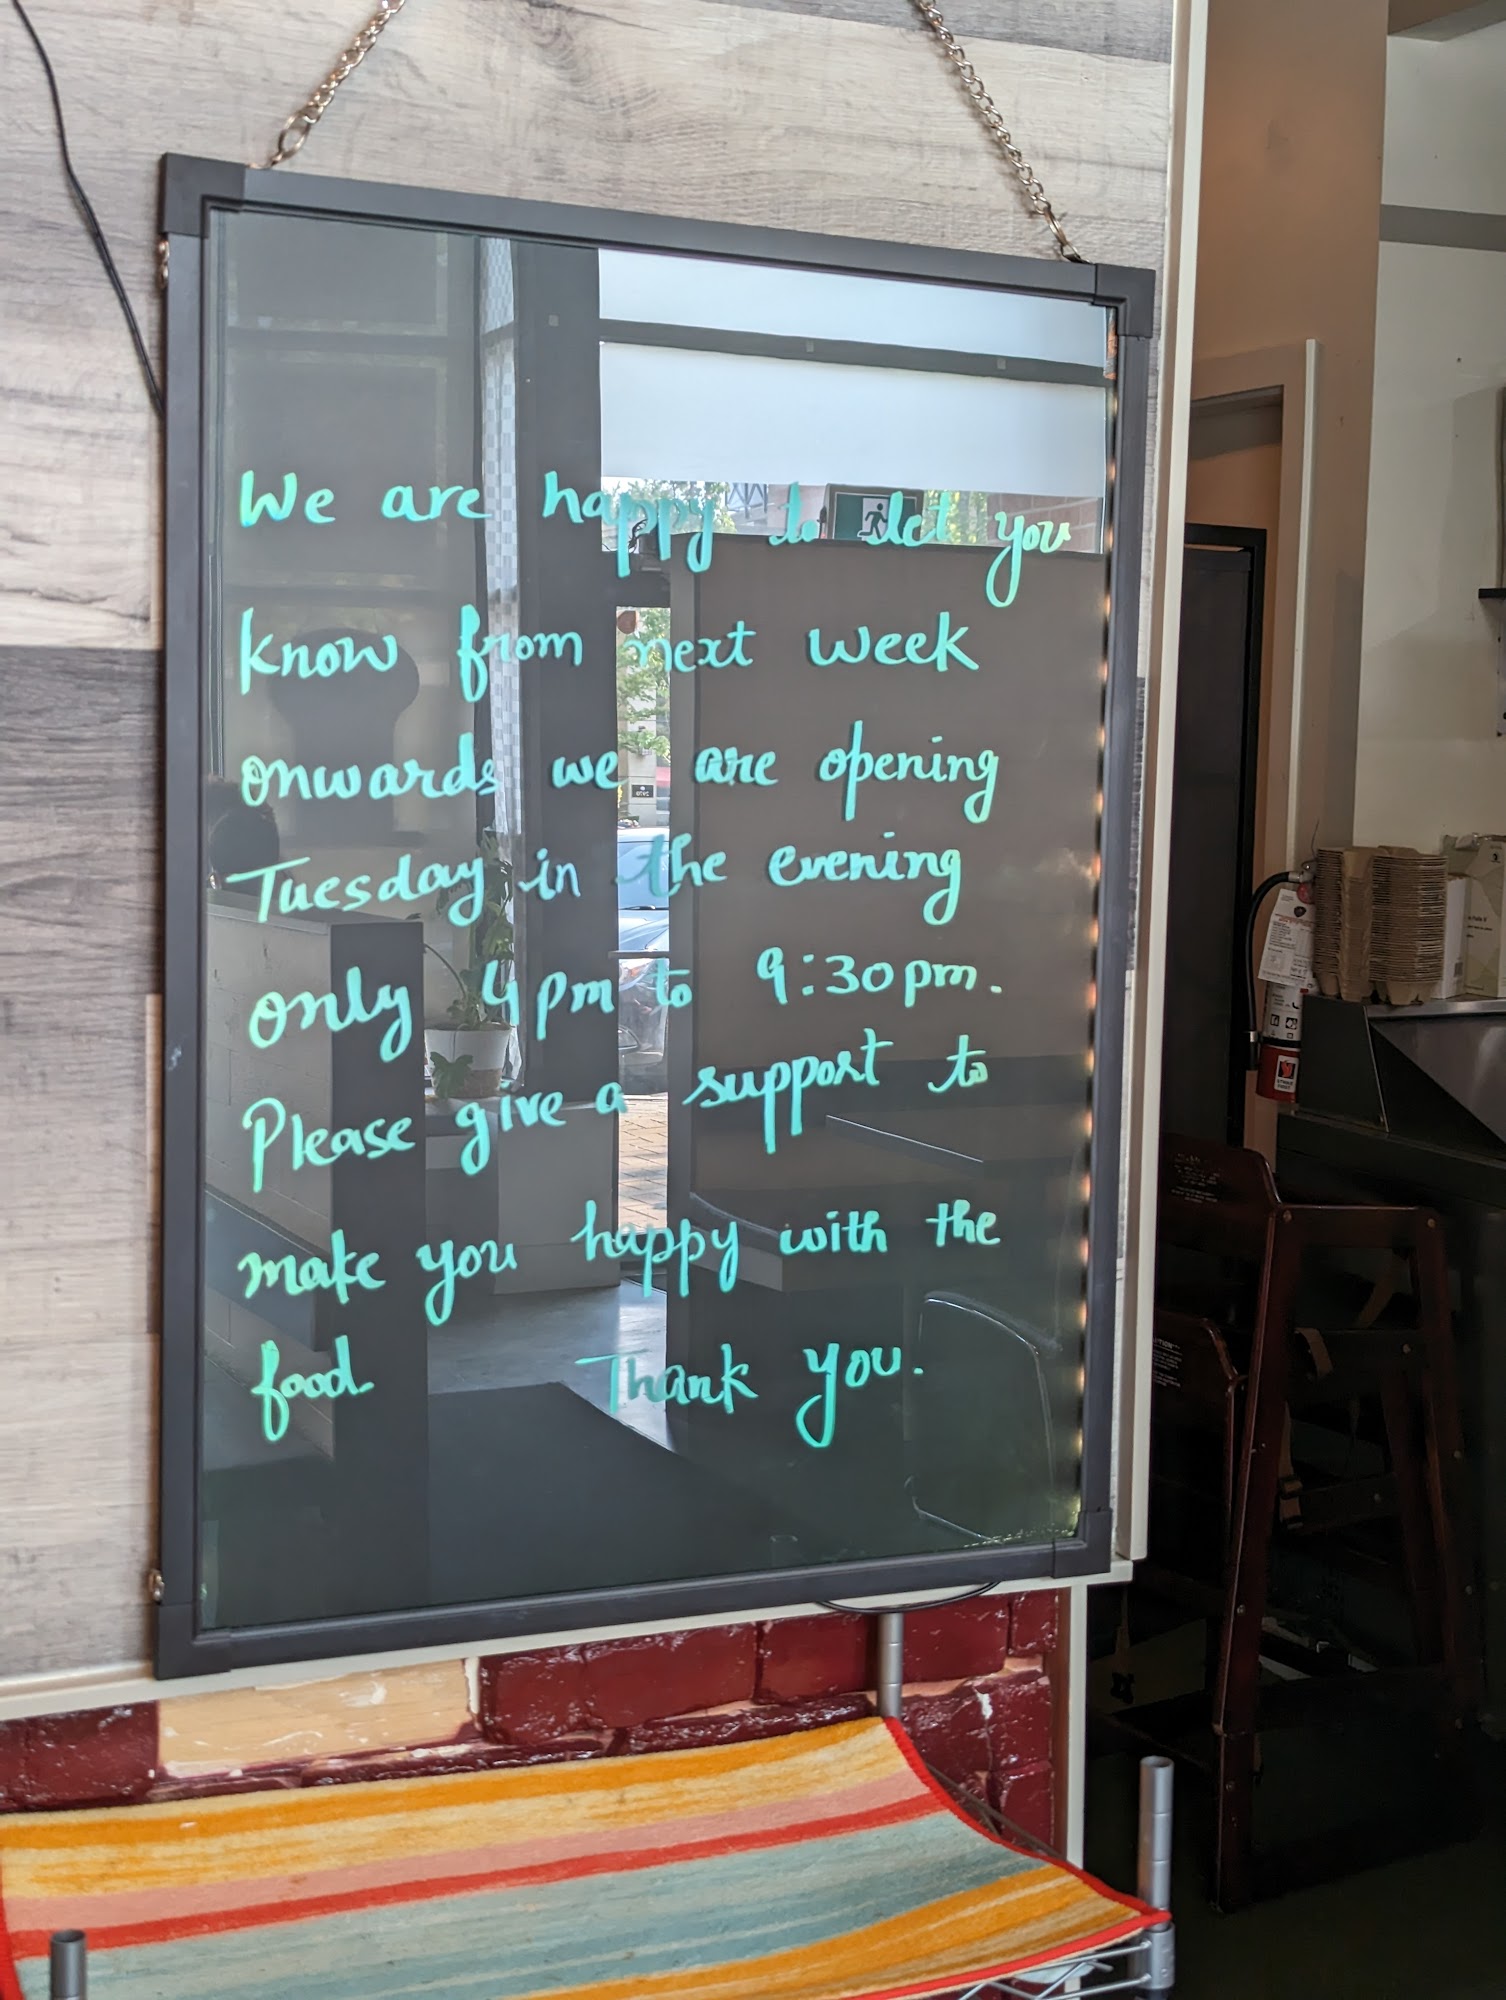 We are happy to let you
know from next week
onwards we are opening
Tuesday in the evening
only 4pm to 9:30pm.
Please give a support to
make you happy with the
food. Thank you.